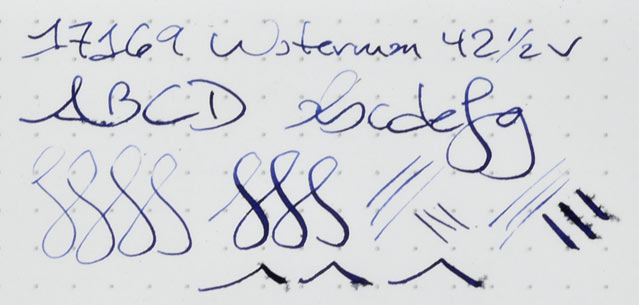 17169 Waterman 42½ V
ABCD abcdefg